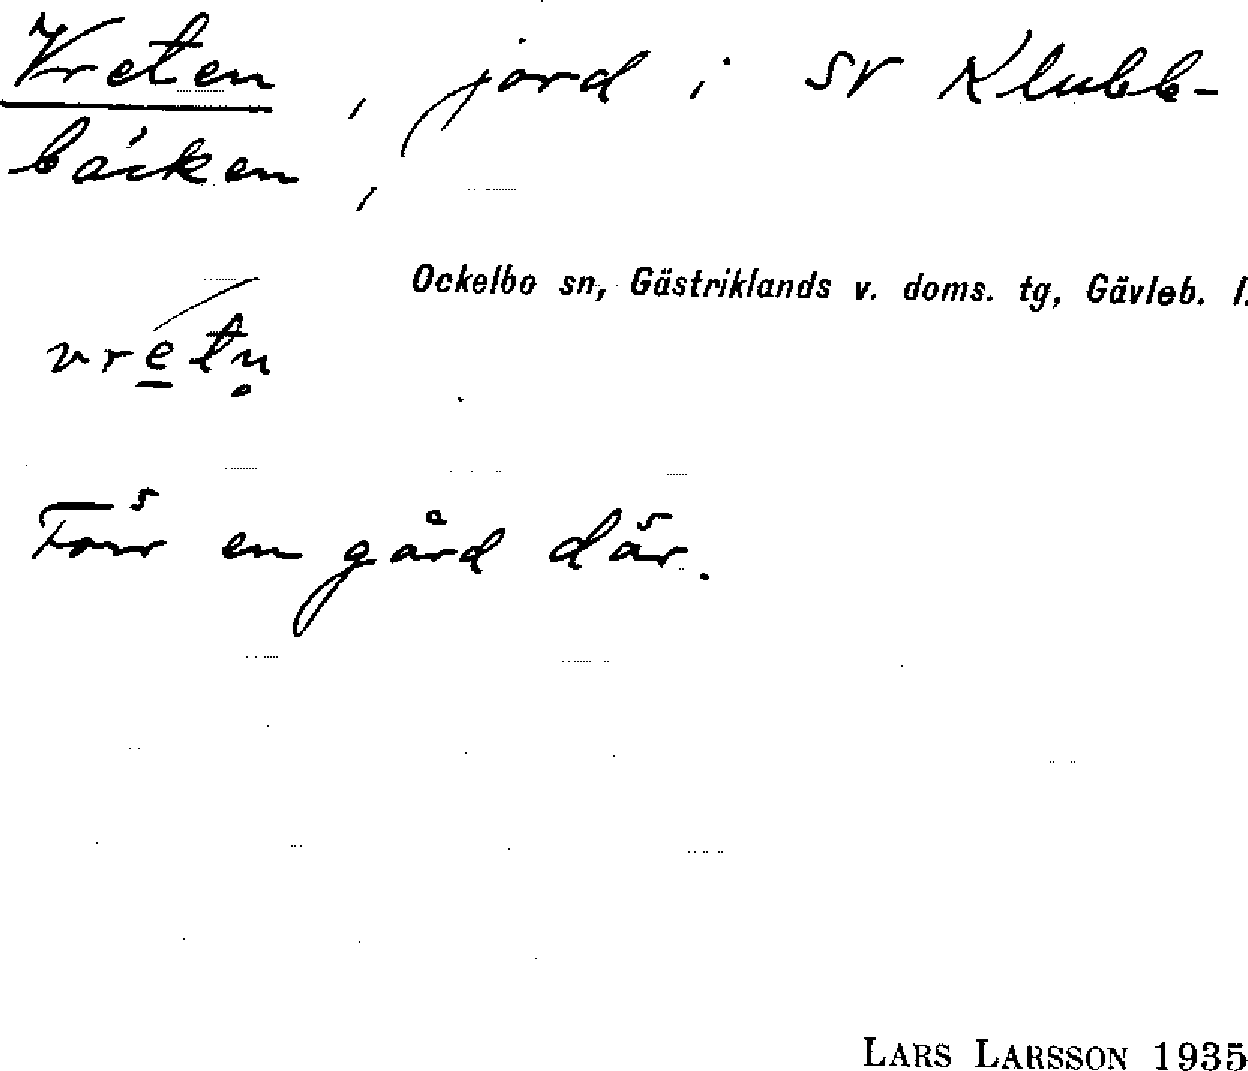 Vreten, jord i SV Klubb-
bäcken,
Ockelbo sn, Gästriklands v. doms. tg, Gävleb. l.
vretn̥
Förr en gård där.
LARS LARSSON 1935